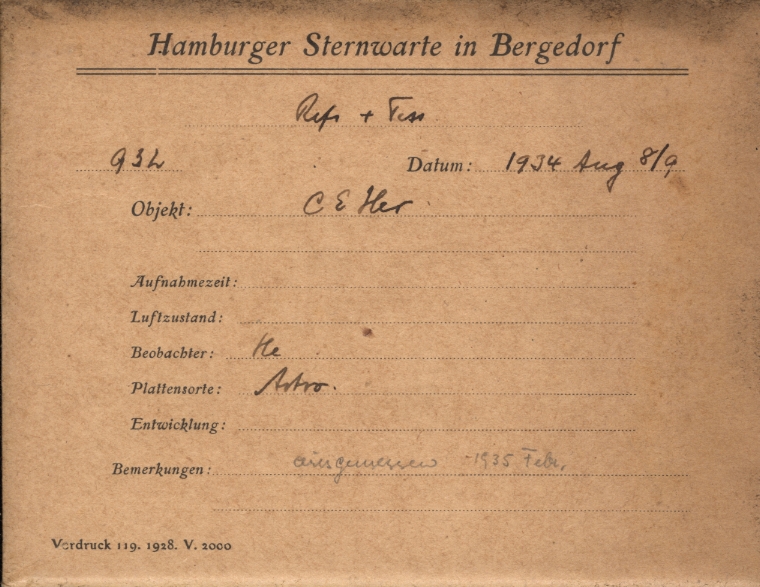 Hamburger Sternwarte in Bergedorf
Refr + Tess
932 Datum: 1934 Aug 8/9
Objekt: C E Her
Aufnahmezeit:
Luftzustand:
Beobachter: He
Plattensorte: Astro.
Entwicklung:
Bemerkungen: ausgemessen -1935 Febr.
Vordruck 119. 1928. V. 2000